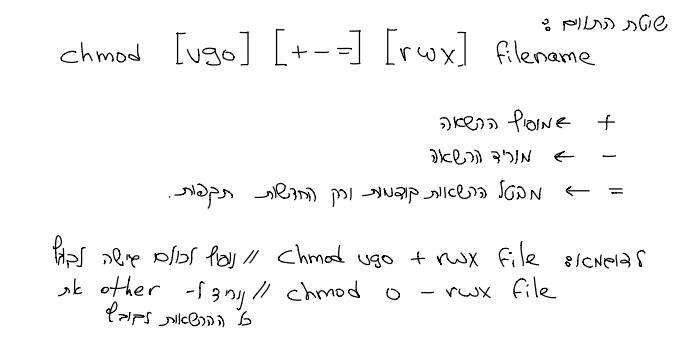 שיטת התווים :
chmod [ugo] [+-=] [rwx] filename
+ ← מוסיף הרשאה
- ← מוריד הרשאה
= ← מבטל הרשאות קודמות ורק החדשות תקפות.
לדוגמא: chmod ugo + rwx file // נוסיף לכולם גישה לקובץ
chmod o - rwx file // נוריד ל- other את
כל ההרשאות לקובץ